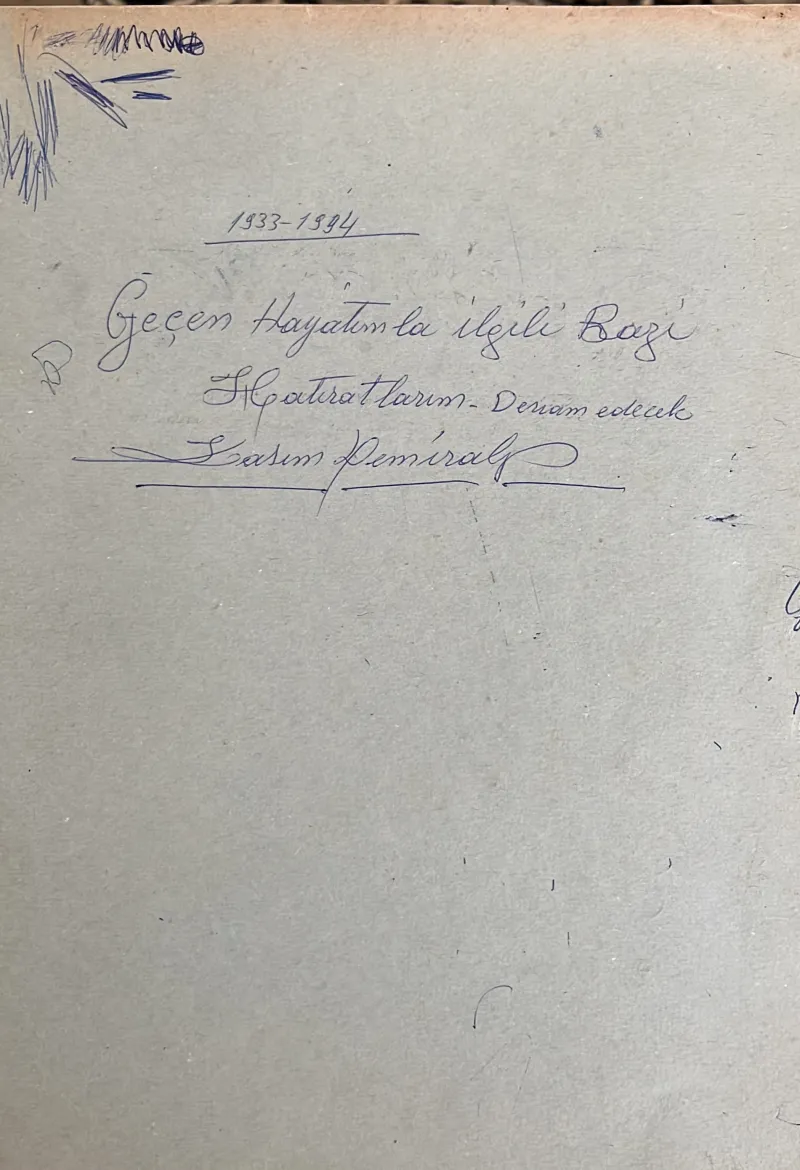 1933-1994
Geçen Hayatımla ilgili Bazi
Hatıratlarım - Devam edecek
Kasım Demiralp